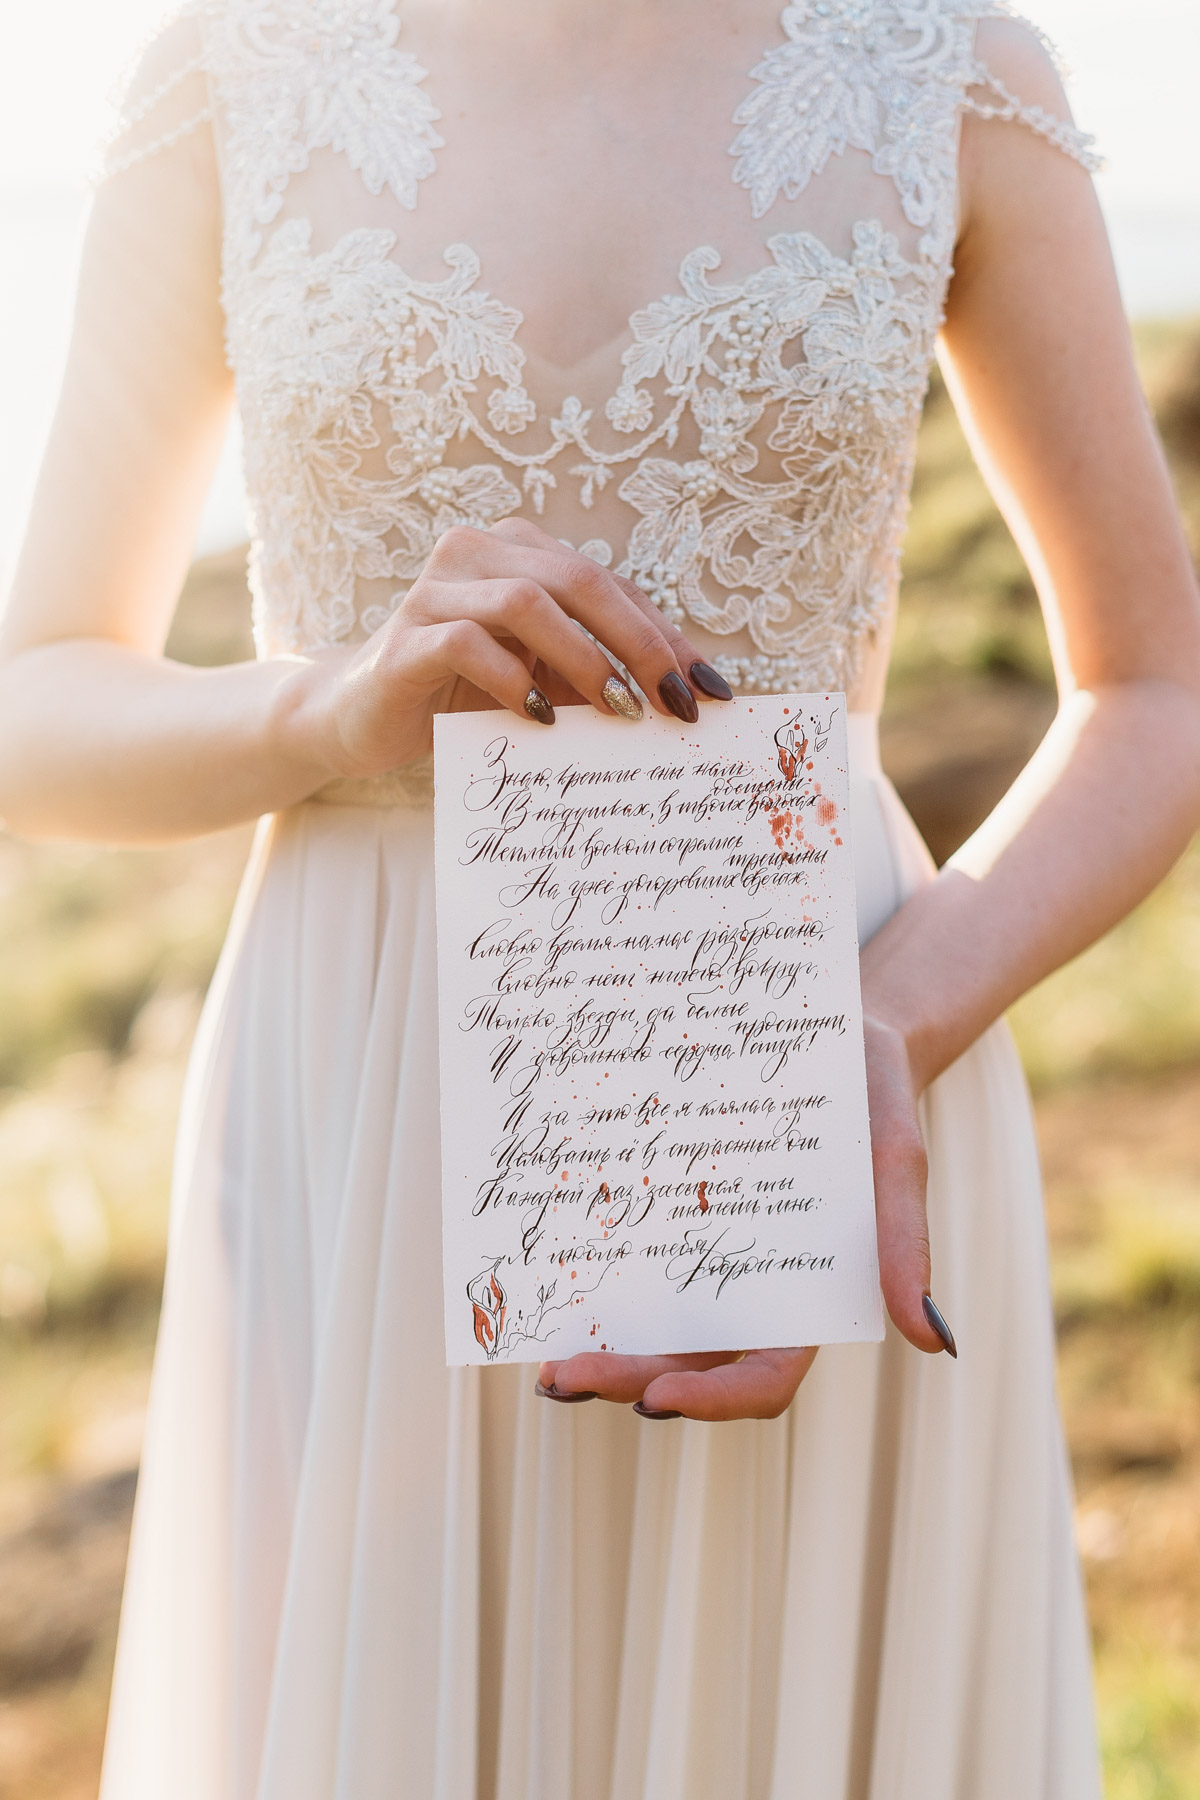 Знаю, крепкие сны нам обещаны
В подушках, в твоих волосах
Теплым воском согрелись трещины
На уже догоревших свечах.
Словно время на нас разбросано,
Словно нет ничего вокруг,
Только звезды, да белые простыни,
И довольного сердца стук!
И за это все я клялась луне
Целовать её в страстные дни
Каждый раз, засыпая, ты шепчешь мне:
Я люблю тебя! Доброй ночи.